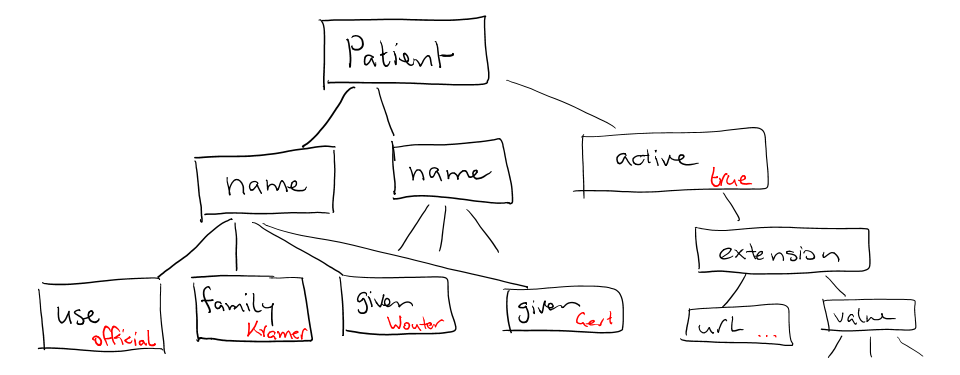 Patient
name
name
active
true
extension
use
official
family
Kramer
given
Wouter
given
Gert
url
...
value